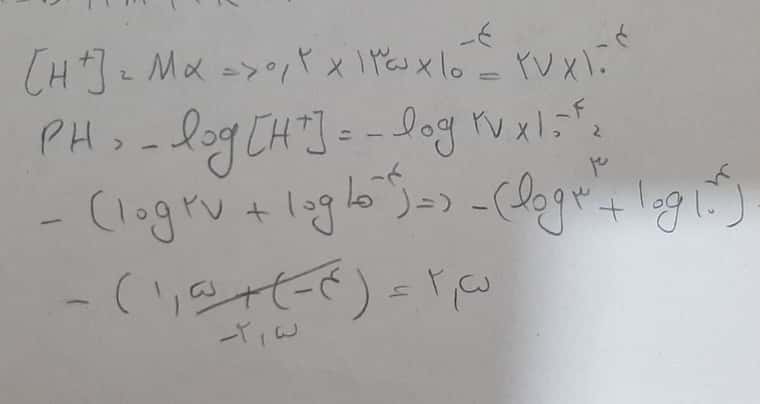 [H⁺] = Mα => ۰,۲ × ۱۳۵ × ۱۰⁻⁴ = ۲۷ × ۱۰⁻⁴
PH = - log [H⁺] = - log ۲۷ × ۱۰⁻⁴ =
- (log ۲۷ + log ۱۰⁻⁴) => - (log ۳³ + log ۱۰⁻⁴)
- (۱,۵ + (-۴) = ۲,۵
-۲,۵